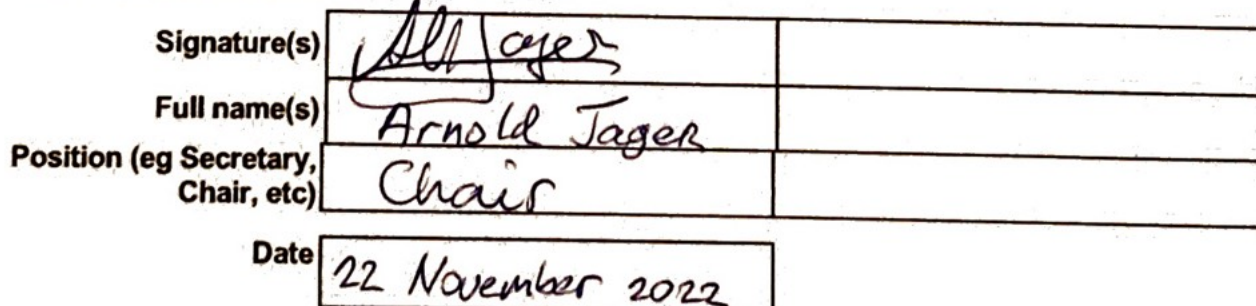 Signature(s)
Full name(s) Arnold Jager
Position (eg Secretary,
Chair, etc) Chair
Date 22 November 2022